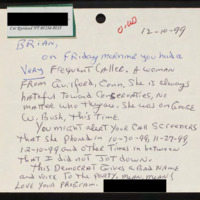 West Rutland VT 05777
0:00
12-10-99
BRIAN,
ON FRIDAY MORNING YOU HAD A
VERY FREQUENT CALLER. A WOMAN
FROM GUILFORD, CONN. SHE IS ALWAYS
HATEFUL TOWARD CONSERVATIVES, NO
MATTER WHO THEY ARE. SHE WAS ON GEORGE
W. BUSH, THIS TIME.
YOU MIGHT ALERT YOUR CALL SCREENERS
THAT SHE PHONED IN 10-30-99, 11-27-99,
12-10-99 AND OTHER TIMES IN BETWEEN
THAT I DID NOT JOT DOWN.
THIS DEMOCRAT GIVES A BAD NAME
AND VOICE TO THE PARTY. MEAN, MEAN!
LOVE YOUR PROGRAM.